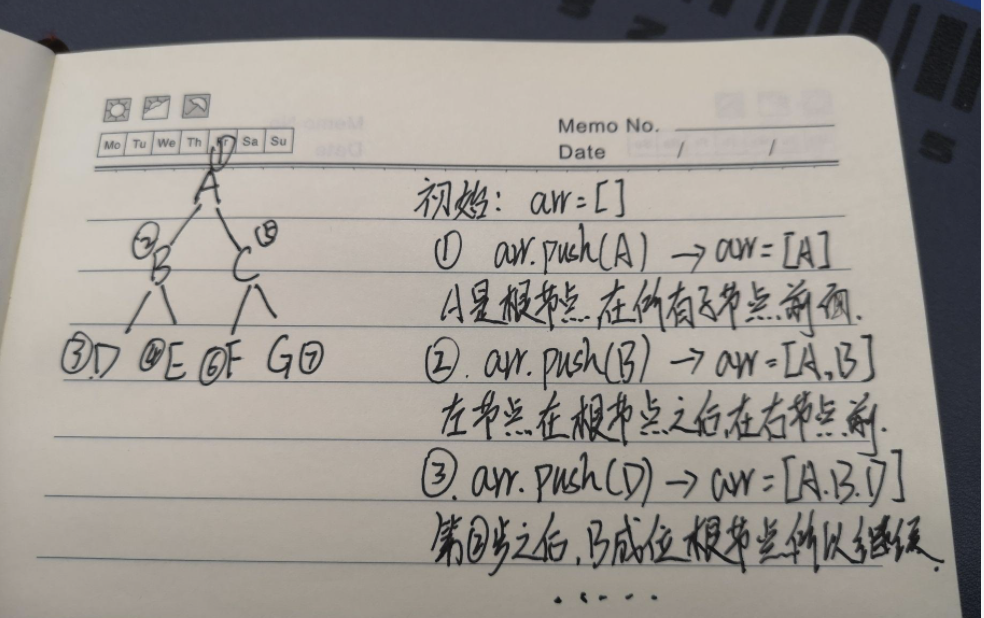 Mo Tu We Th Fr Sa Su
Memo No.
Date / /
①
A
② ⑤
B C
③ D ④ E ⑥ F G ⑦
初始: arr = [ ]
① arr.push(A) → arr = [A]
A是根节点.在所有子节点前面.
②. arr.push(B) → arr = [A,B]
左节点在根节点之后,在右节点前.
③. arr.push(D) → arr = [A.B.D]
第②步之后,B成位根节点所以继续.
.....